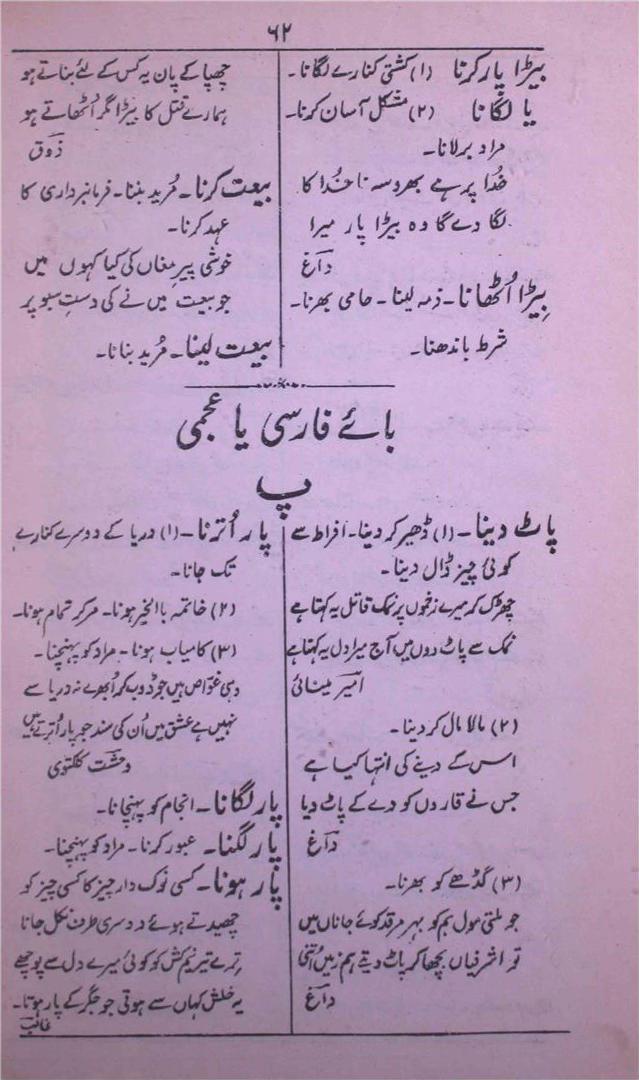 ۶۲
بیڑا پار کرنا (۱) کشتی کنارے لگانا۔
یا لگانا (۲) مشکل آسان کرنا۔
مراد بر لانا۔
خُدا پر ہے بھروسہ ناخُدا کا
لگا دے گا وہ بیڑا پار میرا
داغؔ
بِیڑا اُٹھانا۔ ذمہ لینا۔ حامی بھرنا۔
شرط باندھنا۔
چھپا کے پان یہ کس کے لئے بناتے ہو
ہمارے قتل کا بیڑا مگر اُٹھاتے ہو
ذوقؔ
بیعت کرنا۔ مُرید بننا۔ فرمانبرداری کا
عہد کرنا۔
خوشی پیرِ مغاں کی کیا کہوں میں
جو بیعت میں نے کی دستِ سبو پر
بیعت لینا۔ مُرید بنانا۔
بائے فارسی یا عجمی
پ
پاٹ دینا۔ (۱) ڈھیر کر دینا۔ افراط سے
کوئی چیز ڈال دینا۔
چھڑک کر میرے زخموں پر نمک قاتل یہ کہتا ہے
نمک سے پاٹ دوں میں آج میرا دل یہ کہتا ہے
امیرؔ مینائی
(۲) مالا مال کر دینا۔
اس کے دینے کی انتہا کیا ہے
جس نے قاروں کو دے کے پاٹ دیا
داغؔ
(۳) گڈھے کو بھرنا۔
جو ملتی مول ہم کو بہرِ مرقد کوئے جاناں میں
تو اشرفیاں بچھا کر پاٹ دیتے ہم زمیں اُتنی
داغؔ
پار اُترنا۔ (۱) دریا کے دوسرے کنارے
تک جانا۔
(۲) خاتمہ باالخیر ہونا۔ مر کر تمام ہونا۔
(۳) کامیاب ہونا۔ مراد کو پہنچنا۔
وہی غواص ہیں جو ڈوب کر اُبھرے نہ دریا سے
نہیں ہے عشق میں اُن کی سند جو پار اُترتے ہیں
وحشتؔ کلکتوی
پار لگانا۔ انجام کو پہنچانا۔
پار لگنا۔ عبور کرنا۔ مراد کو پہنچنا۔
پار ہونا۔ کسی نوک دار چیز کا کسی چیز کو
چھیدتے ہوئے دوسری طرف نکل جانا
ترے تیرِ نیم کش کو کوئی میرے دل سے پوچھے
یہ خلش کہاں سے ہوتی جو جگر کے پار ہوتا۔
غالبؔ